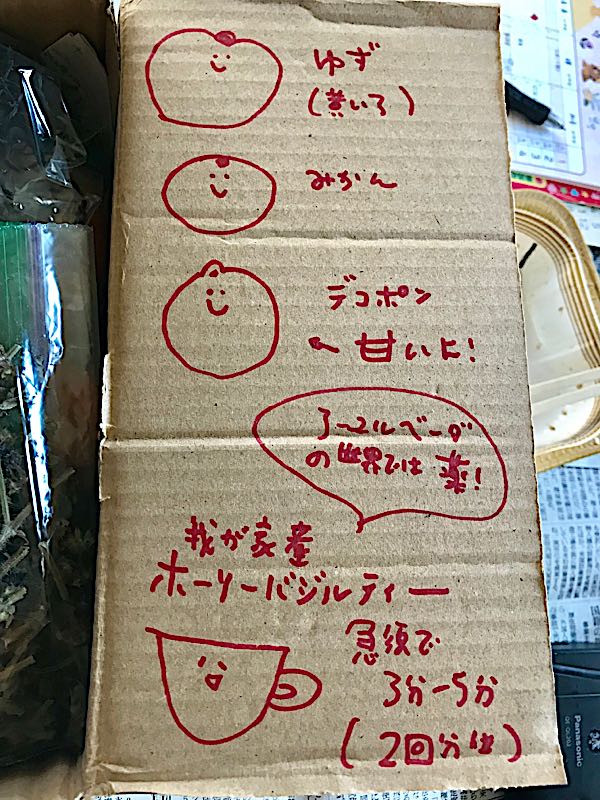 ゆず
(黄いろ)
みかん
デコポン
甘いよ!
アーユルベーダ
の世界では薬!
我が家産
ホーリーバジルティー
急須で
3分-5分
(2回分位)
Panasonic